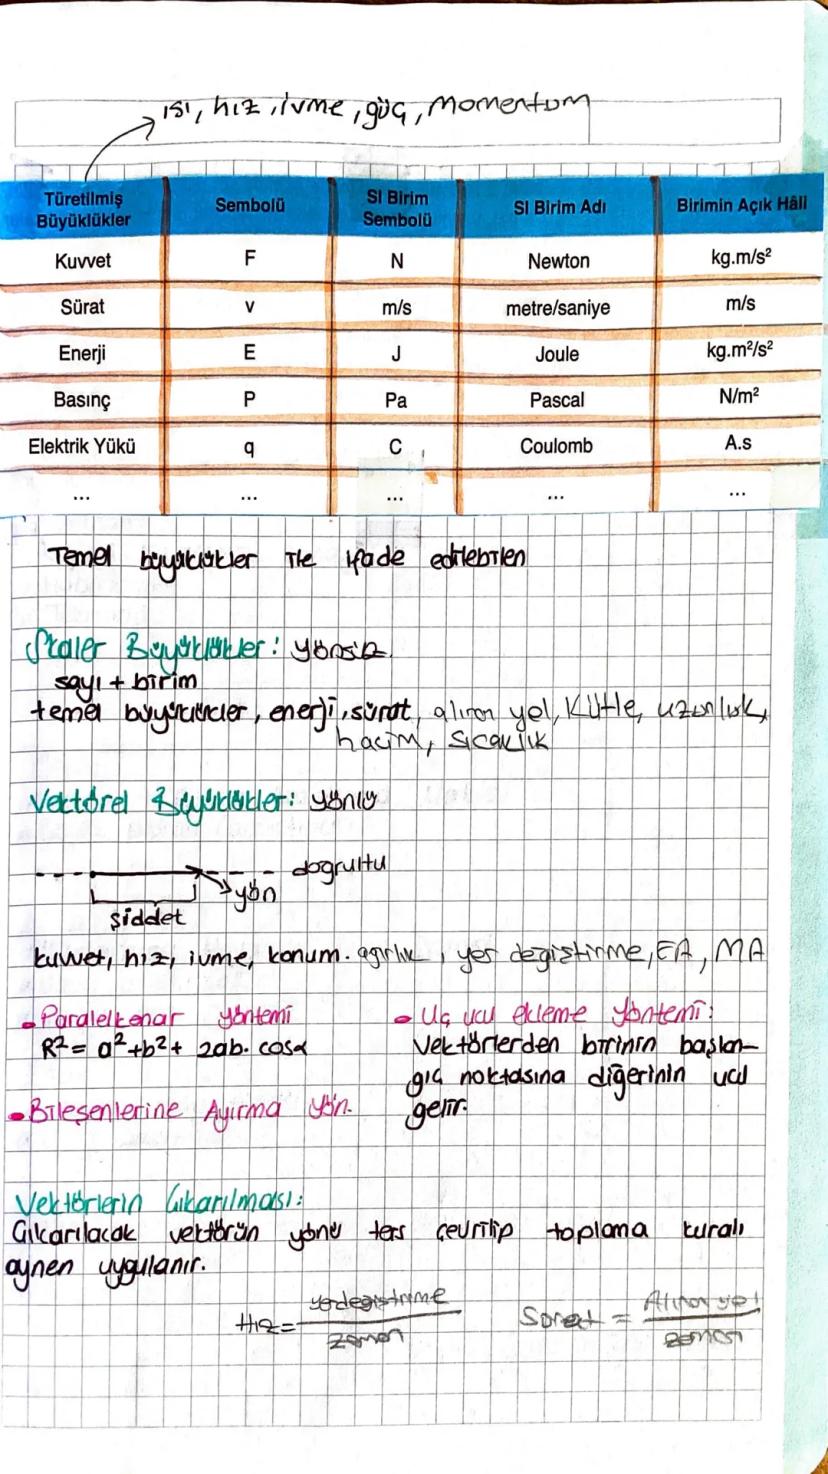 ısı, hız, ivme, güç, momentum
Türetilmiş Büyüklükler Sembolü SI Birim Sembolü SI Birim Adı Birimin Açık Hâli
Kuvvet F N Newton kg.m/s²
Sürat v m/s metre/saniye m/s
Enerji E J Joule kg.m²/s²
Basınç P Pa Pascal N/m²
Elektrik Yükü q C Coulomb A.s
... ... ... ... ...
Temel büyüklükler ile ifade edilebilen
Skaler Büyüklükler: yönsüz
sayı + birim
temel büyüklükler, enerji, sürat, alınan yol, kütle, uzunluk,
hacim, sıcaklık
Vektörel Büyüklükler: yönlü
doğrultu
yön
şiddet
kuvvet, hız, ivme, konum. ağırlık, yer değiştirme, EA, MA
• Paralelkenar yöntemi
R² = a² + b² + 2ab. cosα
• Bileşenlerine Ayırma yön.
• Uç uca ekleme yöntemi:
Vektörlerden birinin başlan-
gıç noktasına diğerinin ucu
gelir.
Vektörlerin Çıkarılması:
Çıkarılacak vektörün yönü ters çevrilip toplama kuralı
aynen uygulanır.
Hız = yerdegistirme / zaman
Sürat = Alınan yol / zaman